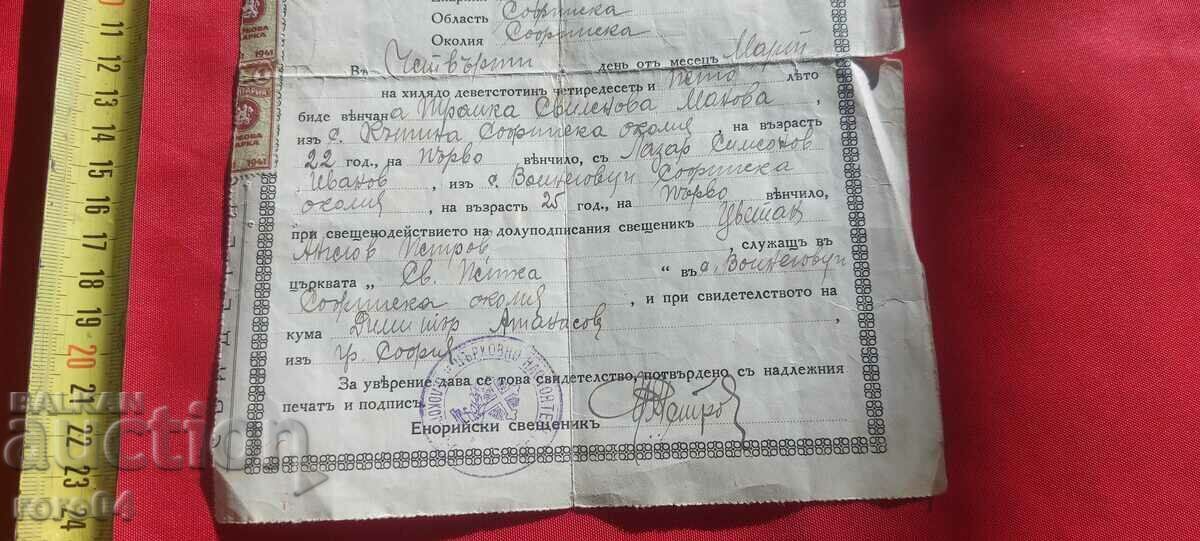 Область Софийска
Околия Софийска
Въ Четвърти день отъ месец Март
на хилядо деветстотинъ четиридесеть и пето лѣто
биде вѣнчана Трайка Свиленова Манова,
изъ с. Кътина Софийска околия, на възрасть
22 год., на първо вѣнчило, съ Лазар Симеонов
Иванов, изъ с. Войнеговци Софийска
околия, на възрасть 25 год., на първо вѣнчило,
при свещенодействието на долуподписания свещеникъ Цветан
Ангелов Петров, служащъ въ
църквата „Св. Петка“ въ с. Войнеговци
Софийска околия, и при свидетелството на
кума Димитър Атанасов,
изъ гр. София
За увѣрение дава се това свидетелство, потвърдено съ надлежния
печатъ и подписъ
Енорийски свещеникъ Петров
ЦЪРКОВНО НАСТОЯТЕЛ
1941
1941
11
12
13
14
15
16
17
18
19
20
21
22
23
24
BALKAN
auction
toro04